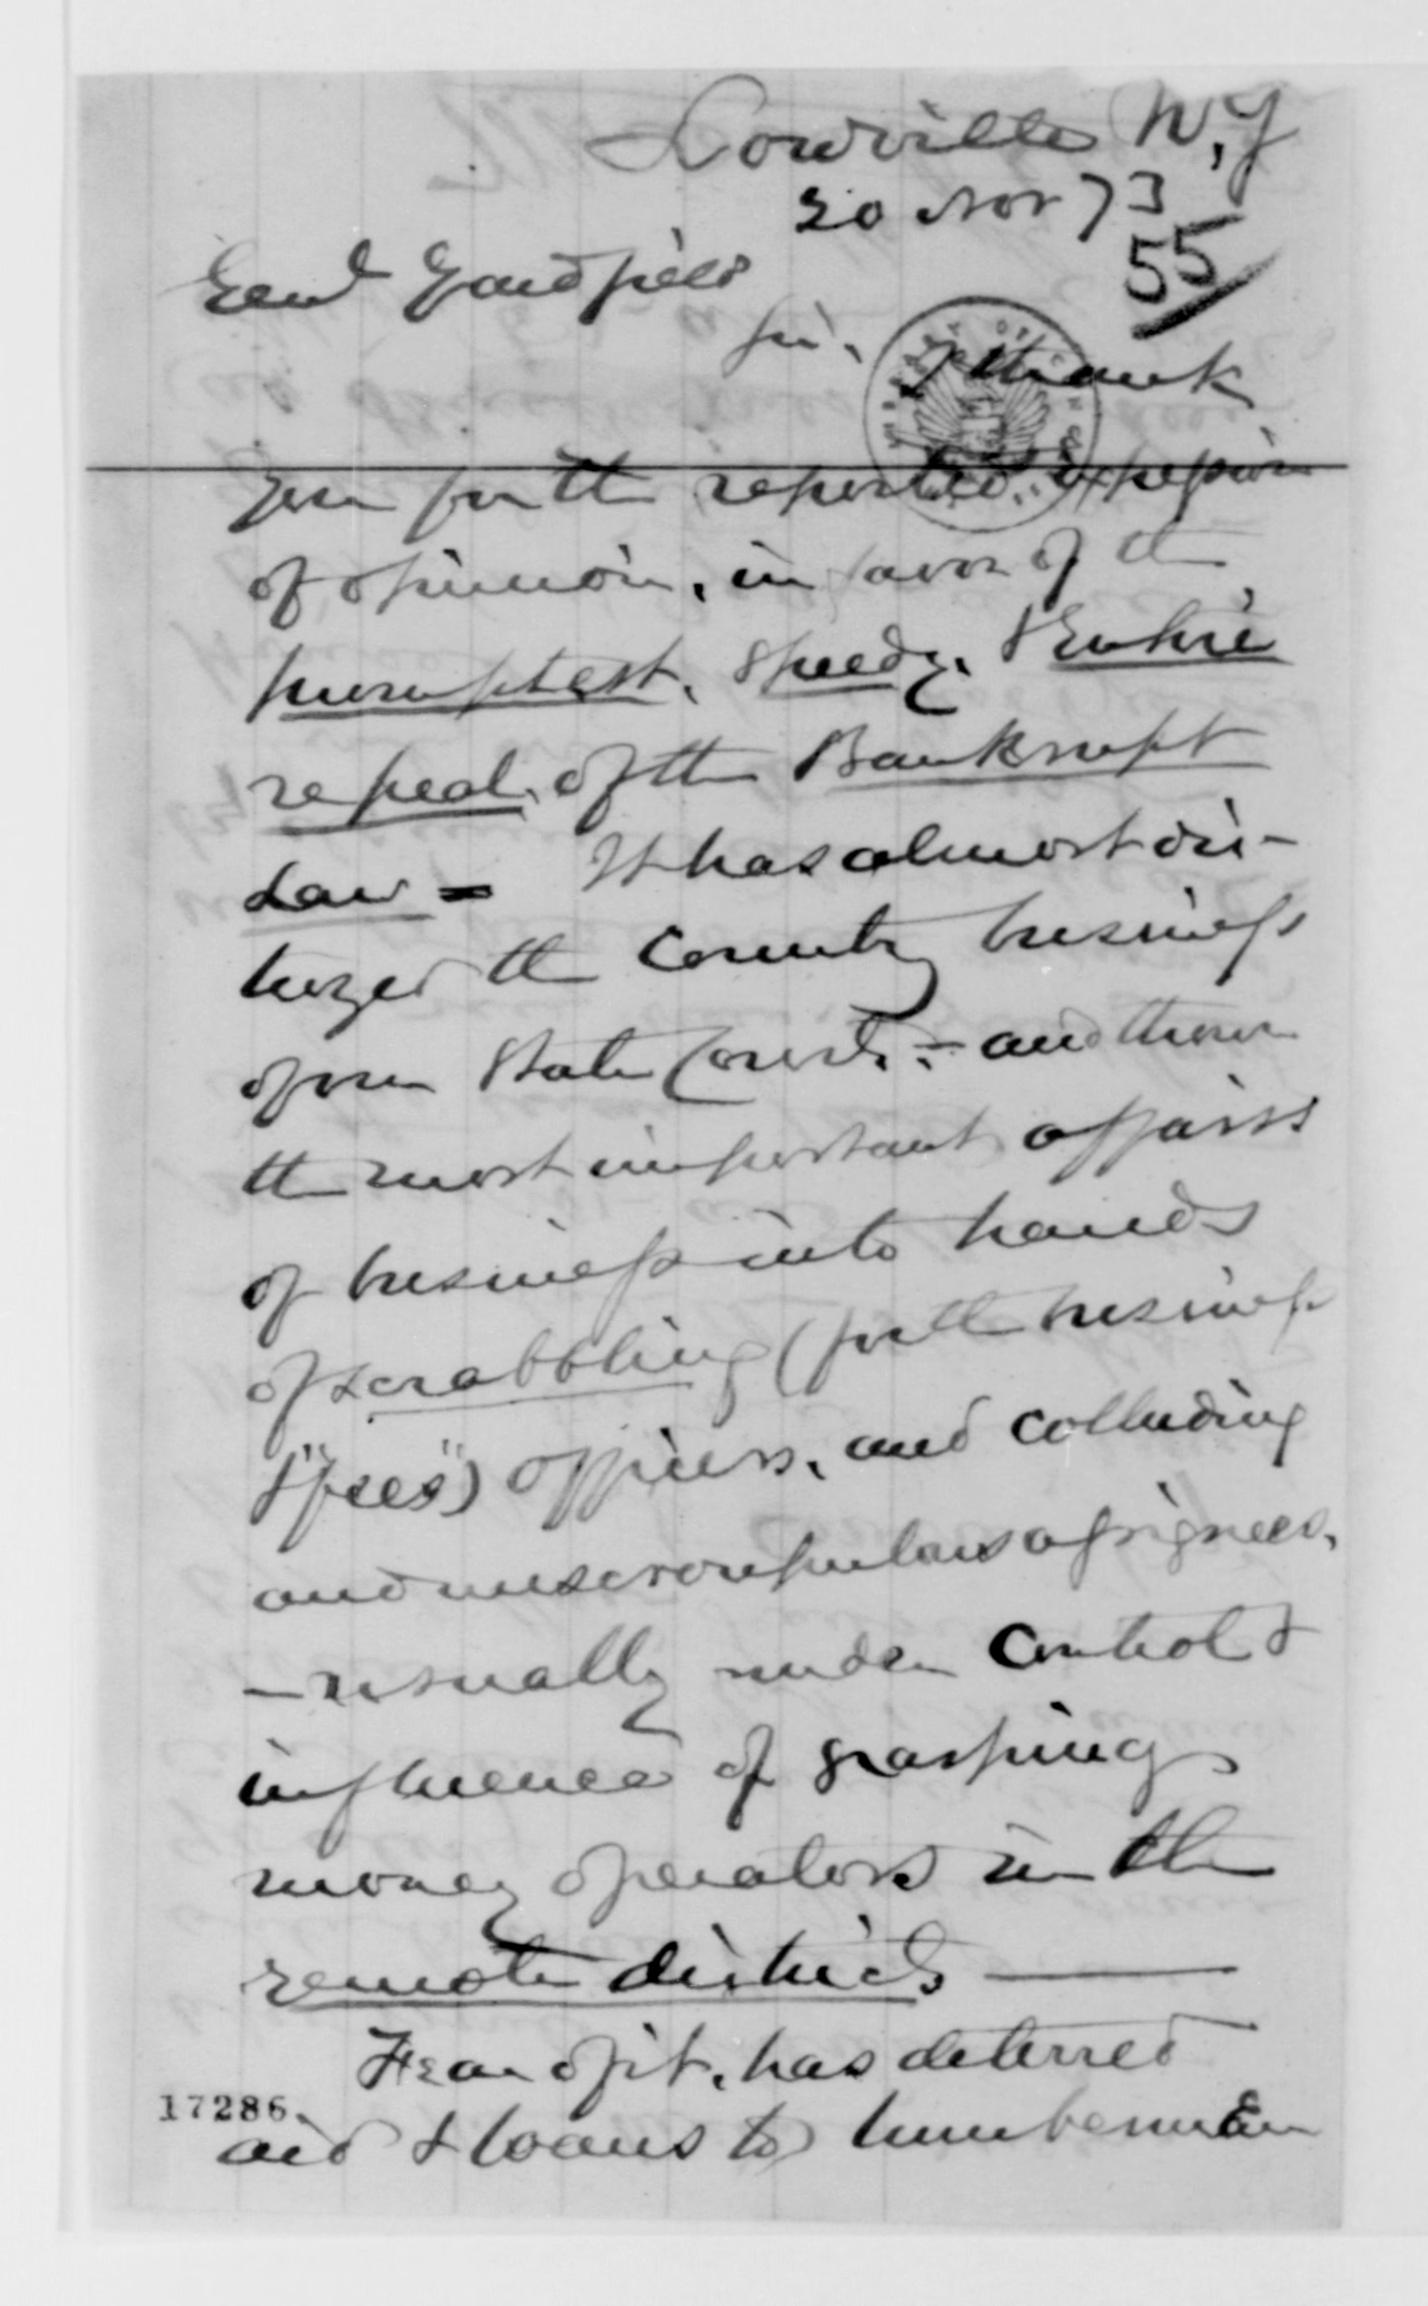 Lowville N.Y
20 Nov 73
55
Genl Garfield
Sir. I thank
you for the reported expression
of opinion, in favor of the
promptest, speedy, & Entire
repeal, of the Bankrupt
Law = It has almost dis-
the Country business
of our State Courts. - and thrown
the most important affairs
of business into hands
of scrabbling (for the business
& "fees") officers, and colluding
and unscrupulous assignees,
- usually under control &
influence of grasping
money operators in the
remote districts
Fear of it, has deterred
17286
aid & loans to lumbermen